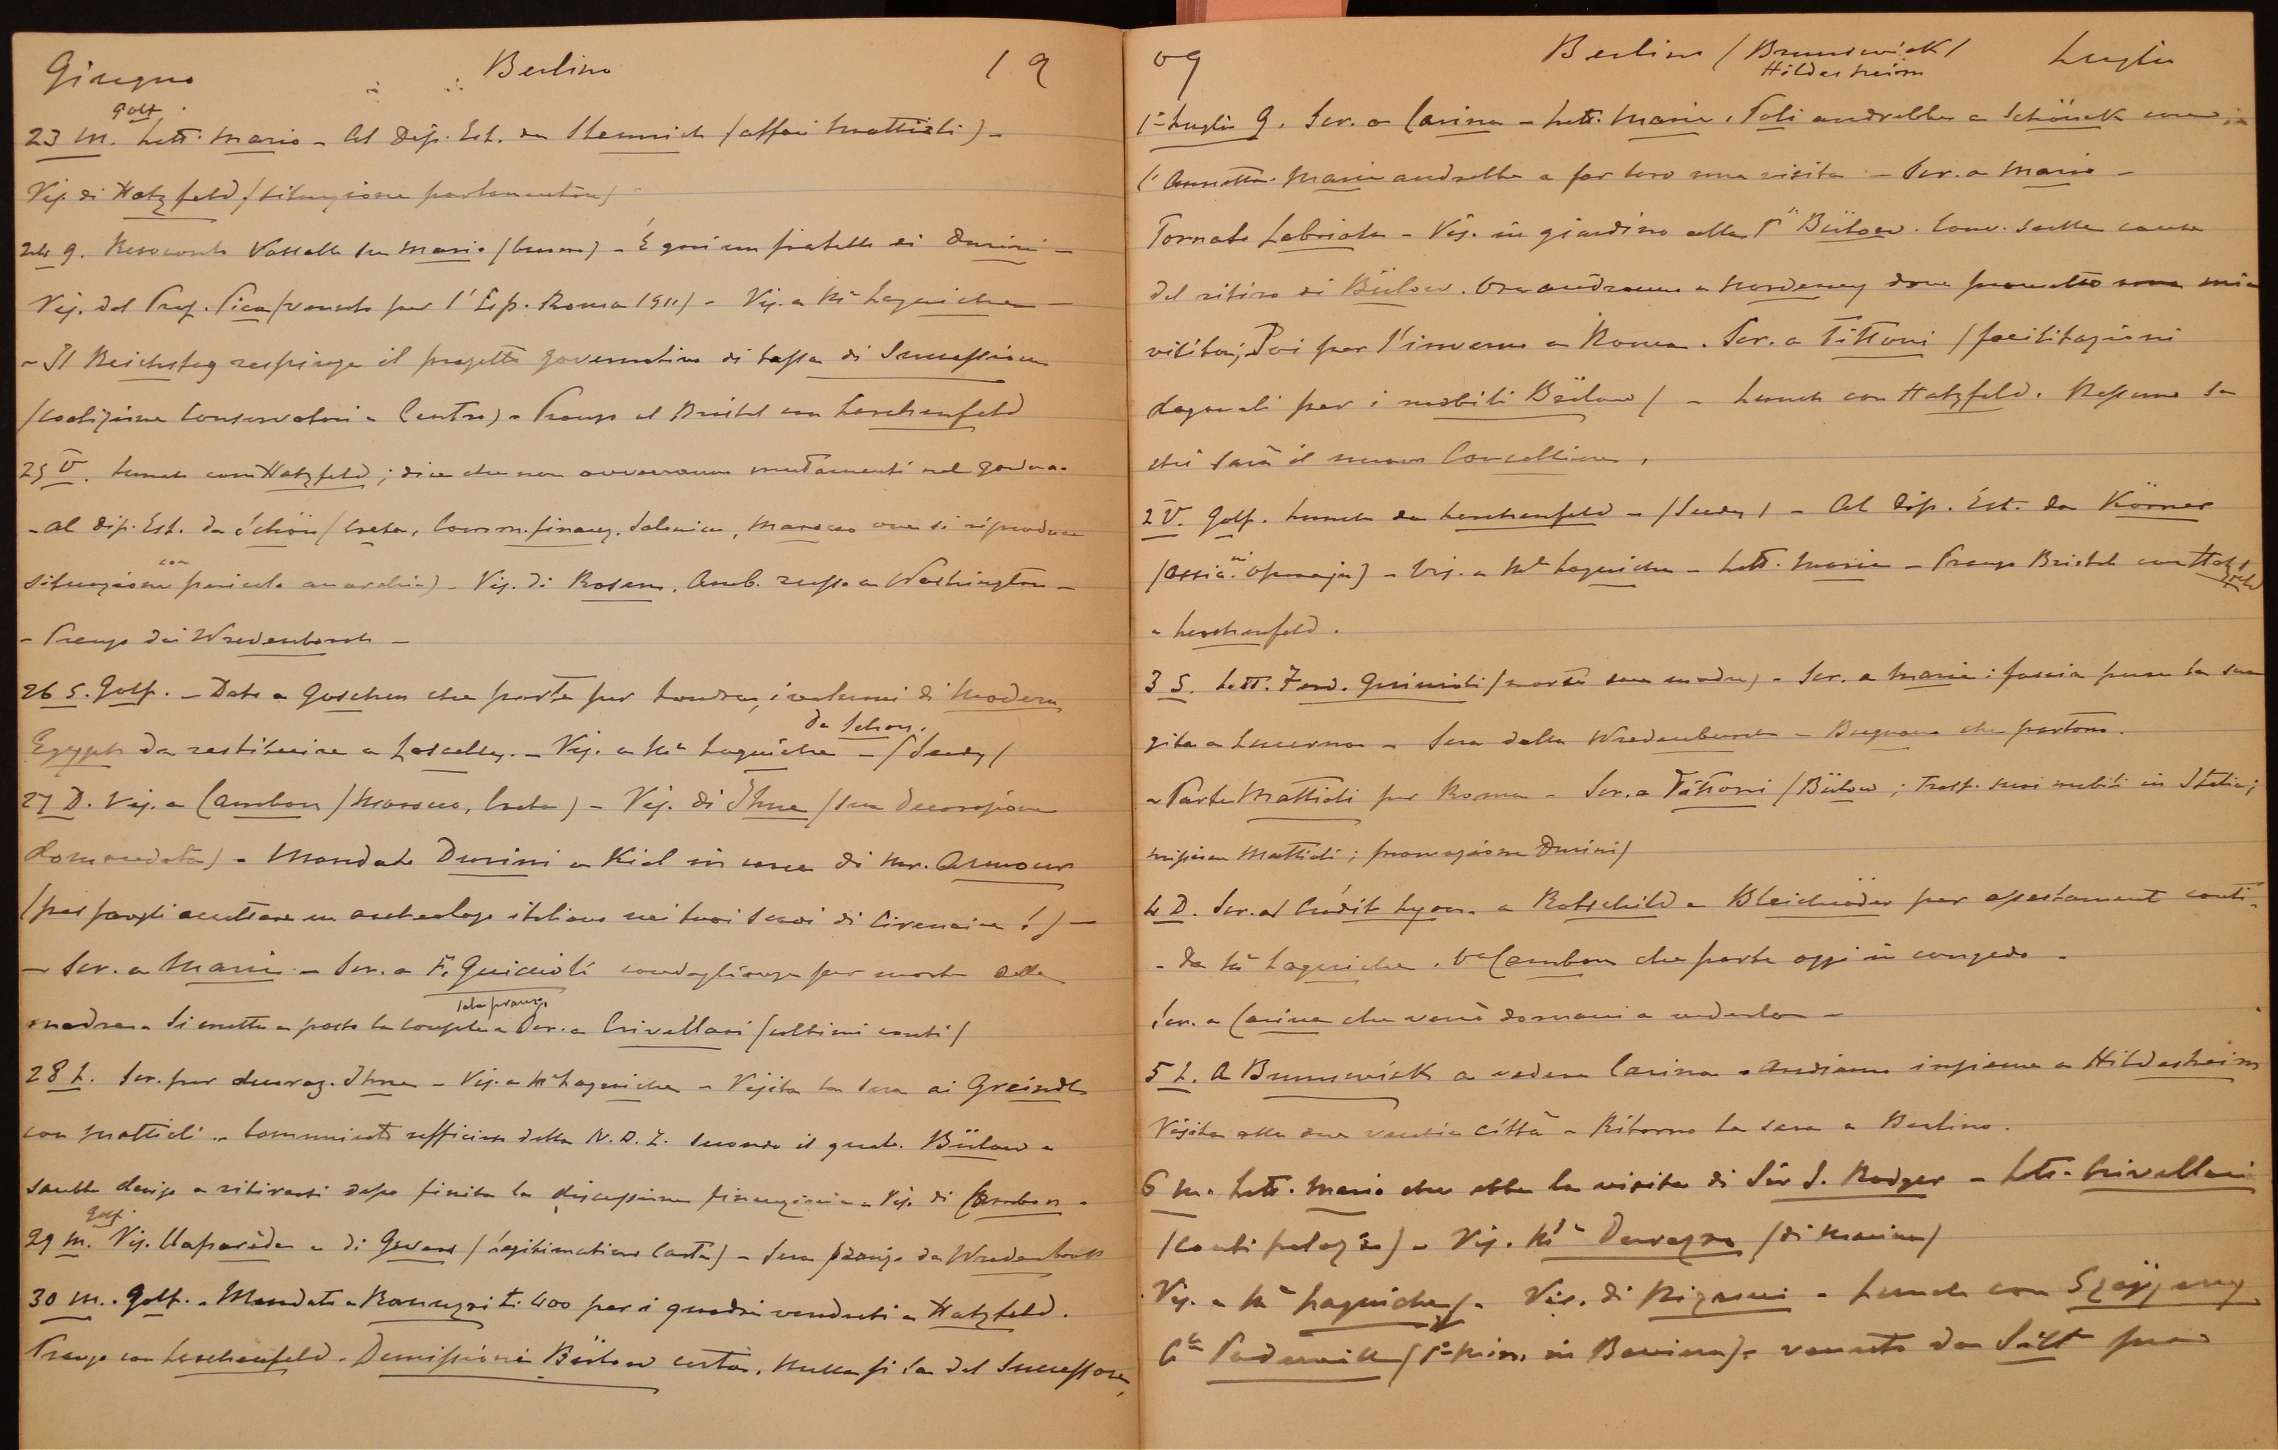 Giugno Berlino 19
golf
23 M. Lett. Mario - Al Dip. Est. da Stemrich (affari Mattioli) -
Vis. di Hatzfeld (situazione parlamentare)
24 G. Resoconto Vassallo su Mario - È qui un fratello di Durini -
Vis. del Prof. Pica (venuto per l'Esp. Roma 1911) - Vis. a Me Laguiche -
- Il Reichstag respinge il progetto governativo di tassa di Successione
(coalizione Conservatori e Centro) - Pranzo al Bristol con Lerchenfeld
25 V. Lunch con Hatzfeld; dice che non avverranno mutamenti nel
- Al dip. Est. da Schön (Creta, Comm. finanz. Salonicco, Marocco ove si riproduce
con
situazione pericolo anarchia) - Vis. di Rosen, Amb. russo a Washington -
- Pranzo dai Wredenbursch -
26 S. Golf. - Dato a Goschen che parte per Londra, i volumi di Modern
da Schön,
Egypt da restituire a Lascelles. - Vis. a Me Laguiche -
27 D. Vis. a Cambon (Marocco, Creta) - Vis. di Ihne (sua decorazione
domandata) - Mandato Durini a Kiel in cerca di Mr. Armour
(per fargli accettare un archeologo italiano nei suoi scavi di Cirenaica!) -
- Scr. a Mario - Scr. a F. Guiccioli condoglianze per morte della
sala pranzo
madre - Si mette a posto la - Scr. a Crivellari (ultimi conti)
28 L. Scr. per decoraz. Ihne - Vis. a Me Laguiche - Visita la sera ai Greindl
con Mattioli - Comunicato ufficioso della N.A.Z. secondo il quale Bülow
sarebbe deciso a ritirarsi dopo finita la discussione finanziaria - Vis. di Cambon -
golf
29 M. Vis. e di Gevers (legitimations Carta) - Sera pranzo da Wredenbursch
30 M. Golf. - Mandato a L. 400 per i quadri venduti a Hatzfeld.
Pranzo con Lerchenfeld - Demissioni Bülow certe. Nulla si sa del Successore,
09 Berlino / Brunswick / Luglio
Hildesheim
1° Luglio G. Scr. a Carina - Lett. Mario. Poli andrebbe a Schöneck con
l'Annetta. Mario andrebbe a far loro una visita - Scr. a Mario -
Tornato Labriola - Vis. in giardino alla Pssa Bülow. Conv. sulle cause
del ritiro di Bülow. Ora andranno a Norderney dove prometto una mia
visita; Poi per l'inverno a Roma. Scr. a Tittoni (facilitazioni
doganali per i mobili Bülow) - Lunch con Hatzfeld. Nessuno sa
chi sarà il nuovo Cancelliere.
2 V. Golf. Lunch da Lerchenfeld - - Al Dip. Est. da Körner
(assic.ni operaje) - Vis. a Me Laguiche - Lett. Mario - Pranzo Bristol con Hatzfeld
e Lerchenfeld.
3 S. Lett. Ferd. Guiccioli (morte sua madre) - Scr. a Mario: faccia pure la sua
gita a Lucerna - Sera dalla Wredenbursch - che partono.
- Parte Mattioli per Roma - Scr. a Tittoni (Bülow; trasp. suoi mobili in Italia;
missione Mattioli; promozione Durini)
4 D. Scr. al Crédit Lyon. a Rotschild e Bleichröder per conti -
- Da Me Laguiche. Ve Cambon che parte oggi in congedo -
Scr. a Carina che verrò domani a vederla -
5 L. A Brunswick a vedere Carina - Andiamo insieme a Hildesheim
Visita alla città - Ritorno la sera a Berlino.
6 M. Lett. Mario che ebbe la visita di Sir S. Rodger - Lett. Crivellari
(conti palazzo) - Vis. (di Marina)
Vis. a Me Laguiche - Vis. di - Lunch con Szögyeny
Cte Podewills (1° Min. in Baviera) - venuto da Sylt per